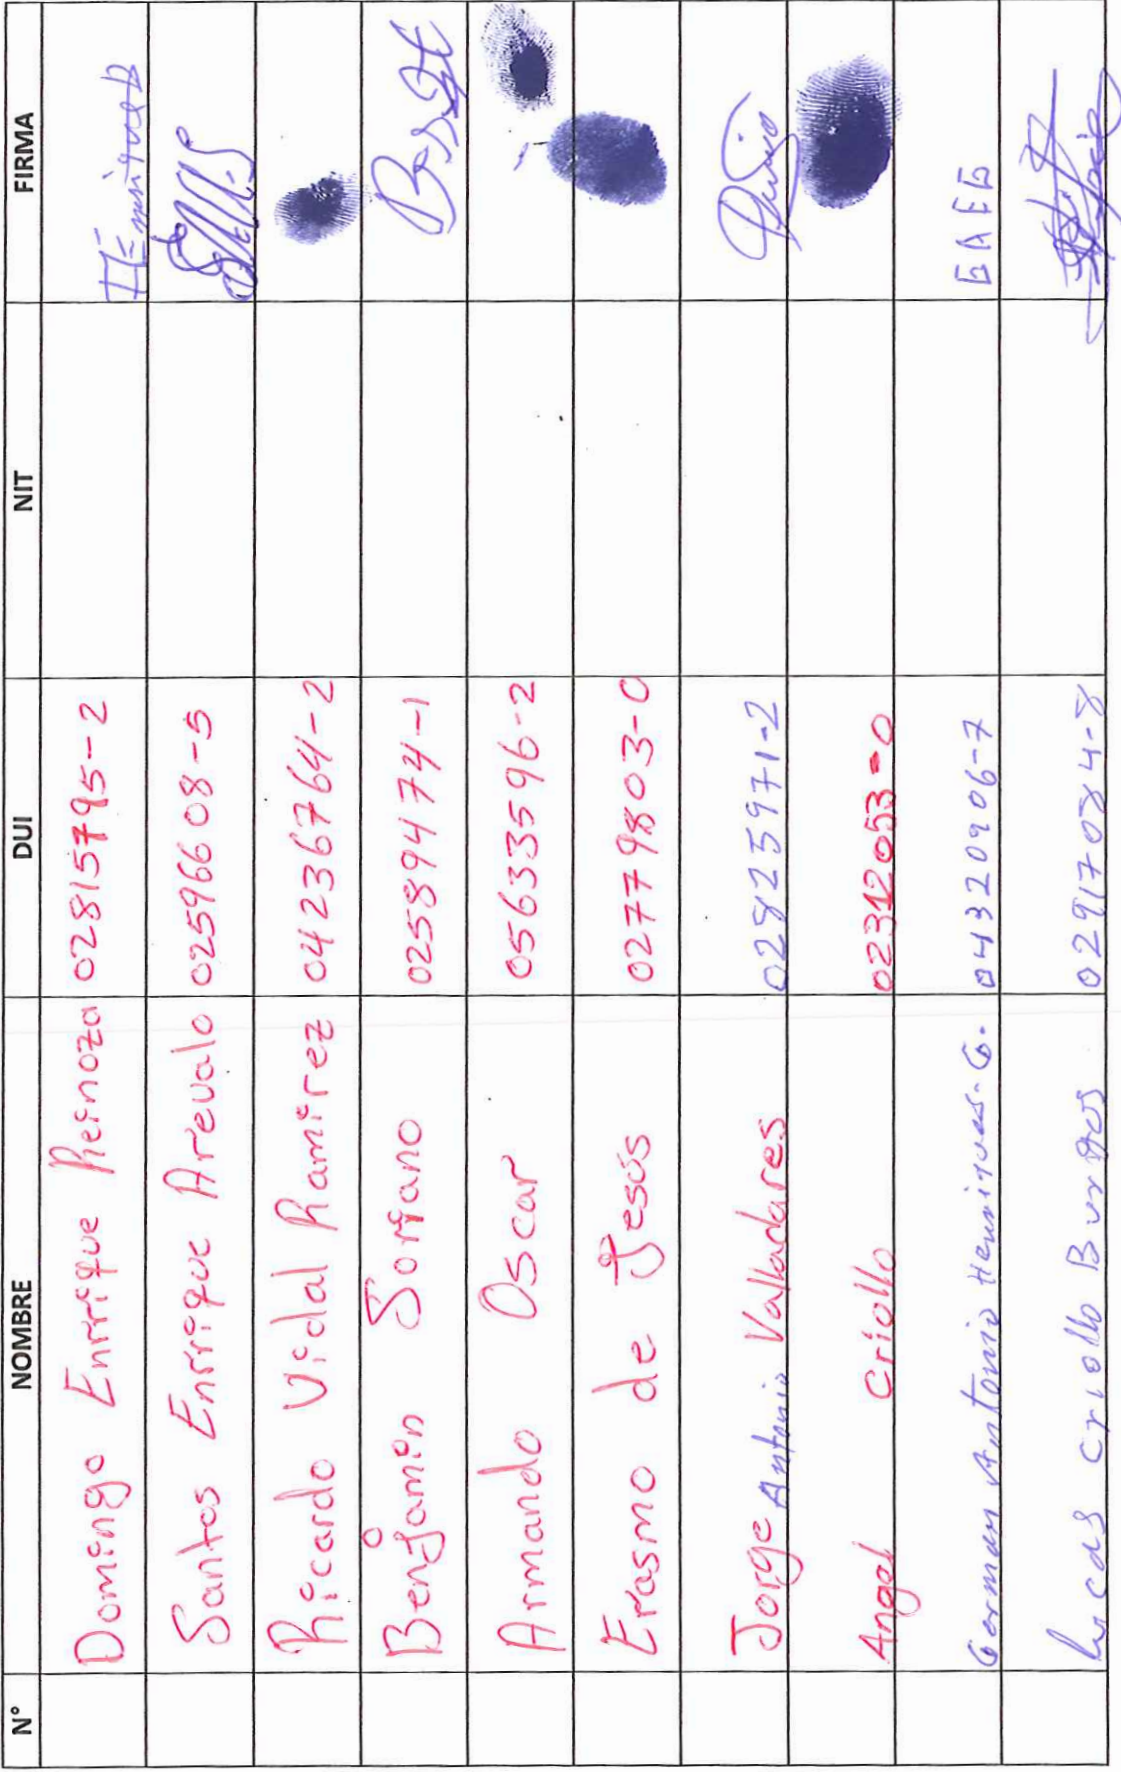 N° NOMBRE DUI NIT FIRMA
Domingo Enrrique Reinoza 02815795-2
Santos Enrrique Arevalo 02596608-5
Ricardo Vidal Ramirez 04236764-2
Benjamin Soriano 02589474-1
Armando Oscar 05633596-2
Erasmo de Jesús 02779803-0
Jorge Antonio Valladares 02825971-2
Angel Criollo 02312053-0
German Antonio Henriques. G. 04320906-7 GAEG
Lucas Criollo Burgos 02917084-8